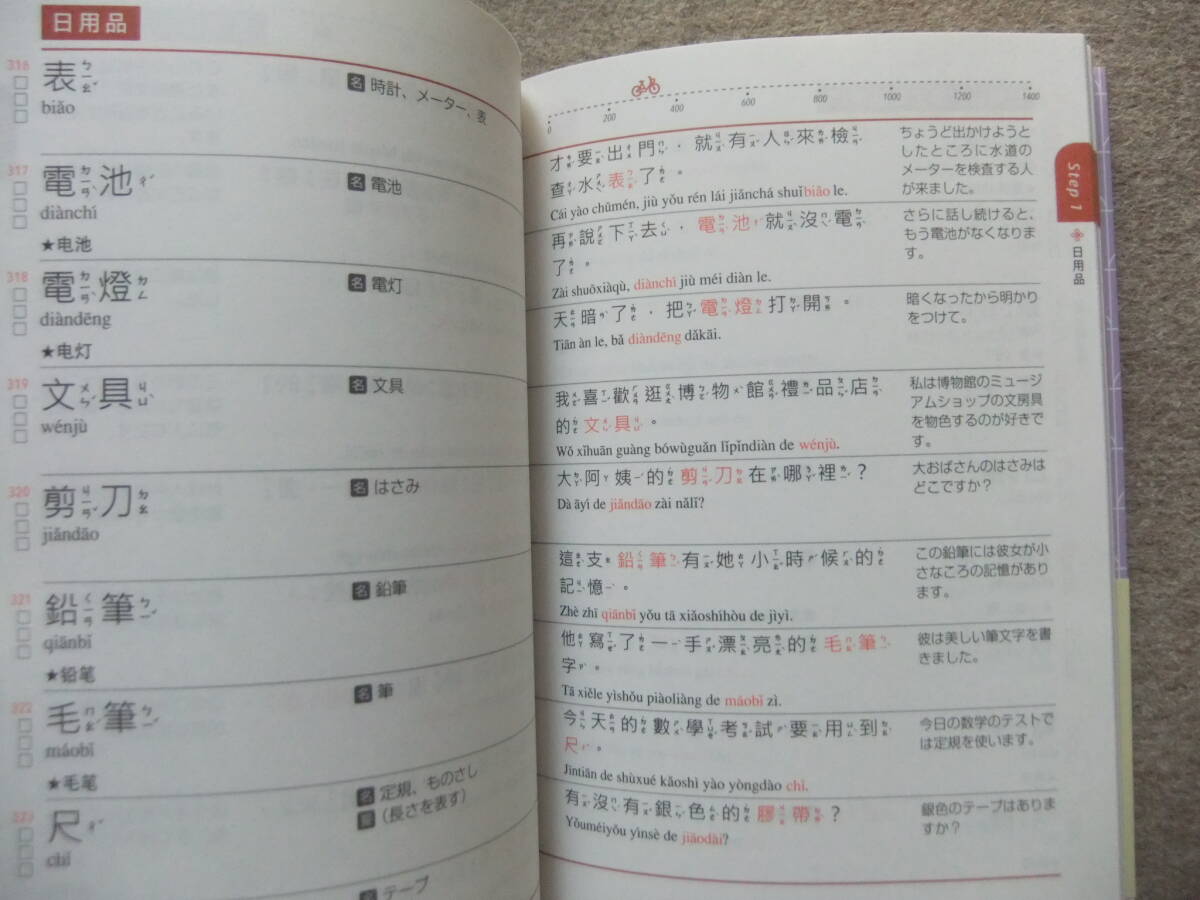 日用品
316
表
biǎo
名 時計、メーター、表
317
電池
diànchí
★电池
名 電池
318
電燈
diàndēng
★电灯
名 電灯
319
文具
wénjù
名 文具
320
剪刀
jiǎndāo
名 はさみ
321
鉛筆
qiānbǐ
★铅笔
名 鉛筆
322
毛筆
máobǐ
★毛笔
名 筆
323
尺
chǐ
名 定規、ものさし
量 (長さを表す)
名 テープ
0 200 400 600 800 1000 1200 1400
才要出門,就有人來檢
查水表了。
Cái yào chūmén, jiù yǒu rén lái jiǎnchá shuǐbiǎo le.
ちょうど出かけようと
したところに水道の
メーターを検査する人
が来ました。
再說下去,電池就沒電
了。
Zài shuōxiàqù, diànchí jiù méi diàn le.
さらに話し続けると、
もう電池がなくなりま
す。
天暗了,把電燈打開。
Tiān àn le, bǎ diàndēng dǎkāi.
暗くなったから明かり
をつけて。
我喜歡逛博物館禮品店
的文具。
Wǒ xǐhuān guàng bówùguǎn lǐpǐndiàn de wénjù.
私は博物館のミュージ
アムショップの文房具
を物色するのが好きで
す。
大阿姨的剪刀在哪裡?
Dà āyí de jiǎndāo zài nǎlǐ?
大おばさんのはさみは
どこですか?
這支鉛筆有她小時候的
記憶。
Zhè zhī qiānbǐ yǒu tā xiǎoshíhòu de jìyì.
この鉛筆には彼女が小
さなころの記憶があり
ます。
他寫了一手漂亮的毛筆
字。
Tā xiěle yìshǒu piàoliàng de máobǐ zì.
彼は美しい筆文字を書
きました。
今天的數學考試要用到
尺。
Jīntiān de shùxué kǎoshì yào yòngdào chǐ.
今日の数学のテストで
は定規を使います。
有沒有銀色的膠帶?
Yǒuméiyǒu yínsè de jiāodài?
銀色のテープはありま
すか?
Step 1
日用品